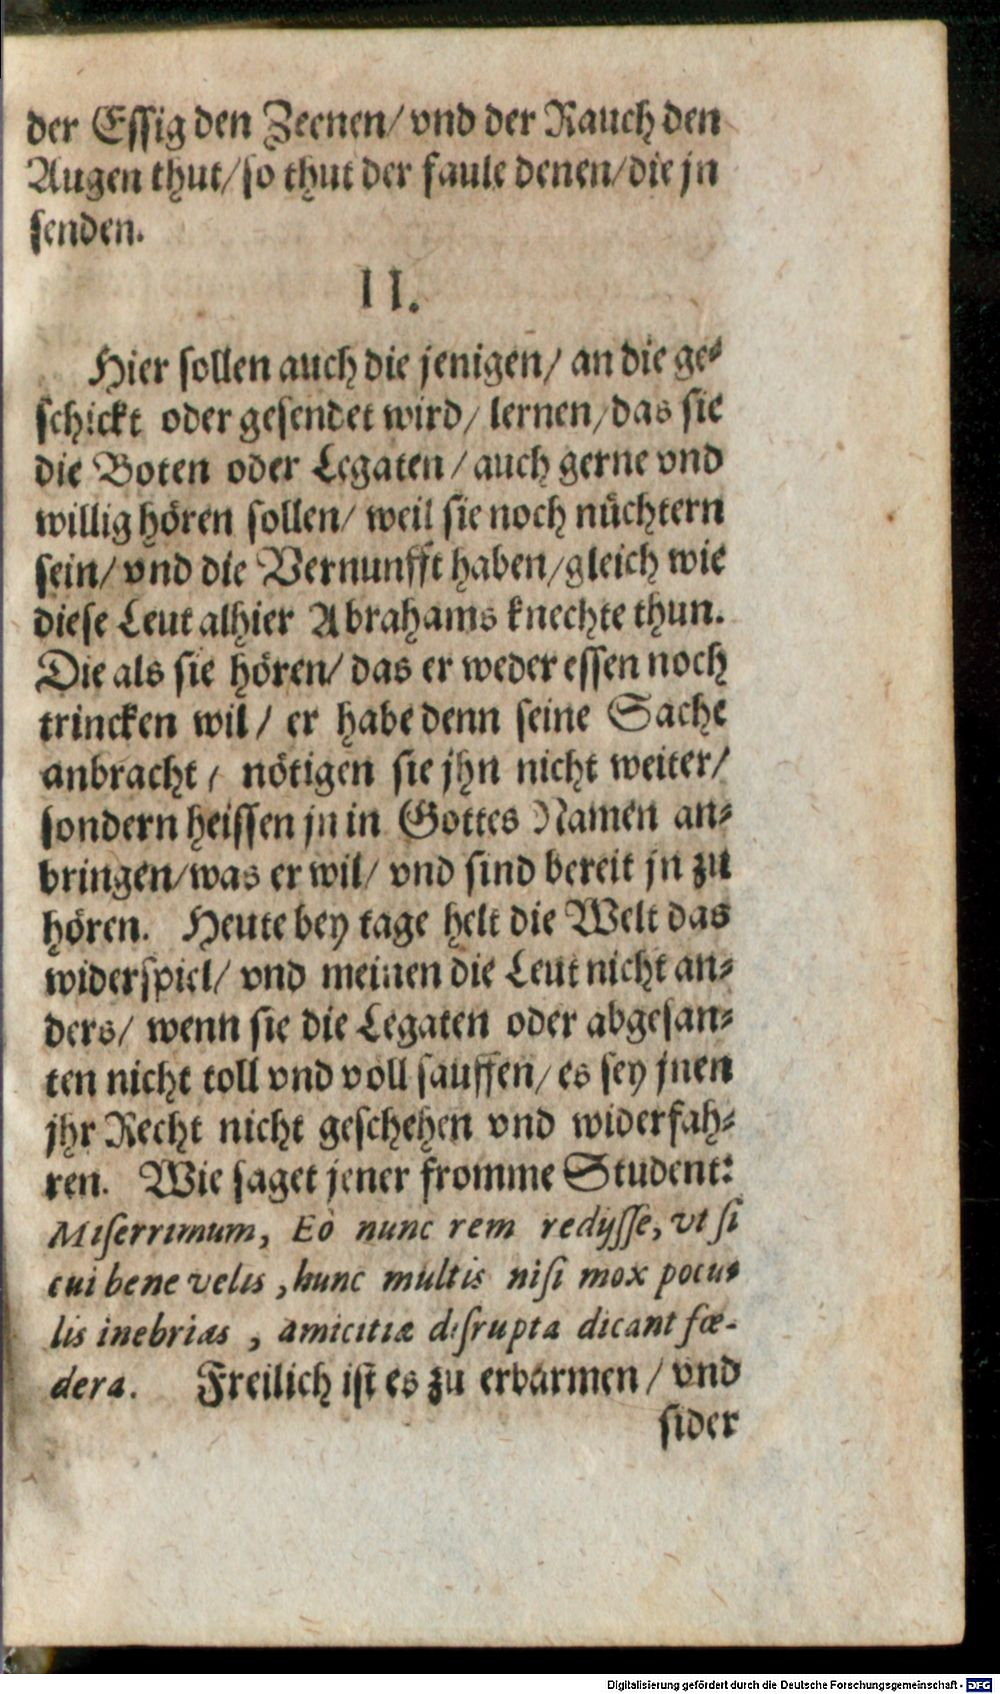 der Essig den Zeenen/ vnd der Rauch den
Augen thut/ so thut der faule denen/ die jn
senden.
II.
Hier sollen auch die jenigen/ an die ge-
schickt oder gesendet wird/ lernen/ das sie
die Boten oder Legaten/ auch gerne vnd
willig hören sollen/ weil sie noch nüchtern
sein/ vnd die Vernunfft haben/ gleich wie
diese Leut alhier Abrahams knechte thun.
Die als sie hören/ das er weder essen noch
trincken wil/ er habe denn seine Sache
anbracht/ nötigen sie jhn nicht weiter/
sondern heissen jn in Gottes Namen an-
bringen/ was er wil/ vnd sind bereit jn zu
hören. Heute bey tage helt die Welt das
widerspiel/ vnd meinen die Leut nicht an-
ders/ wenn sie die Legaten oder abgesan-
ten nicht toll vnd voll sauffen/ es sey jnen
jhr Recht nicht geschehen vnd widerfah-
ren. Wie saget jener fromme Student:
Miserrimum, Eò nunc rem redijsse, vt si
cui bene velis, hunc multis nisi mox pocu-
lis inebrias, amicitiæ disrupta dicant fœ-
dera. Freilich ist es zu erbarmen/ vnd
sider
Digitalisierung gefördert durch die Deutsche Forschungsgemeinschaft - DFG